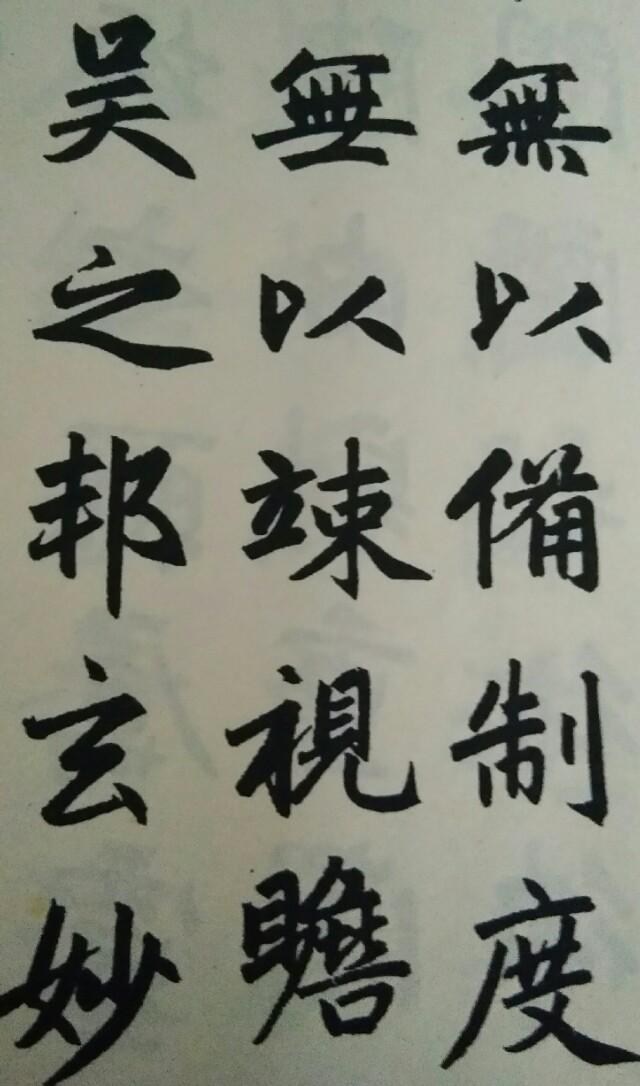 無以備制度
無以竦視瞻
吴之邦玄妙